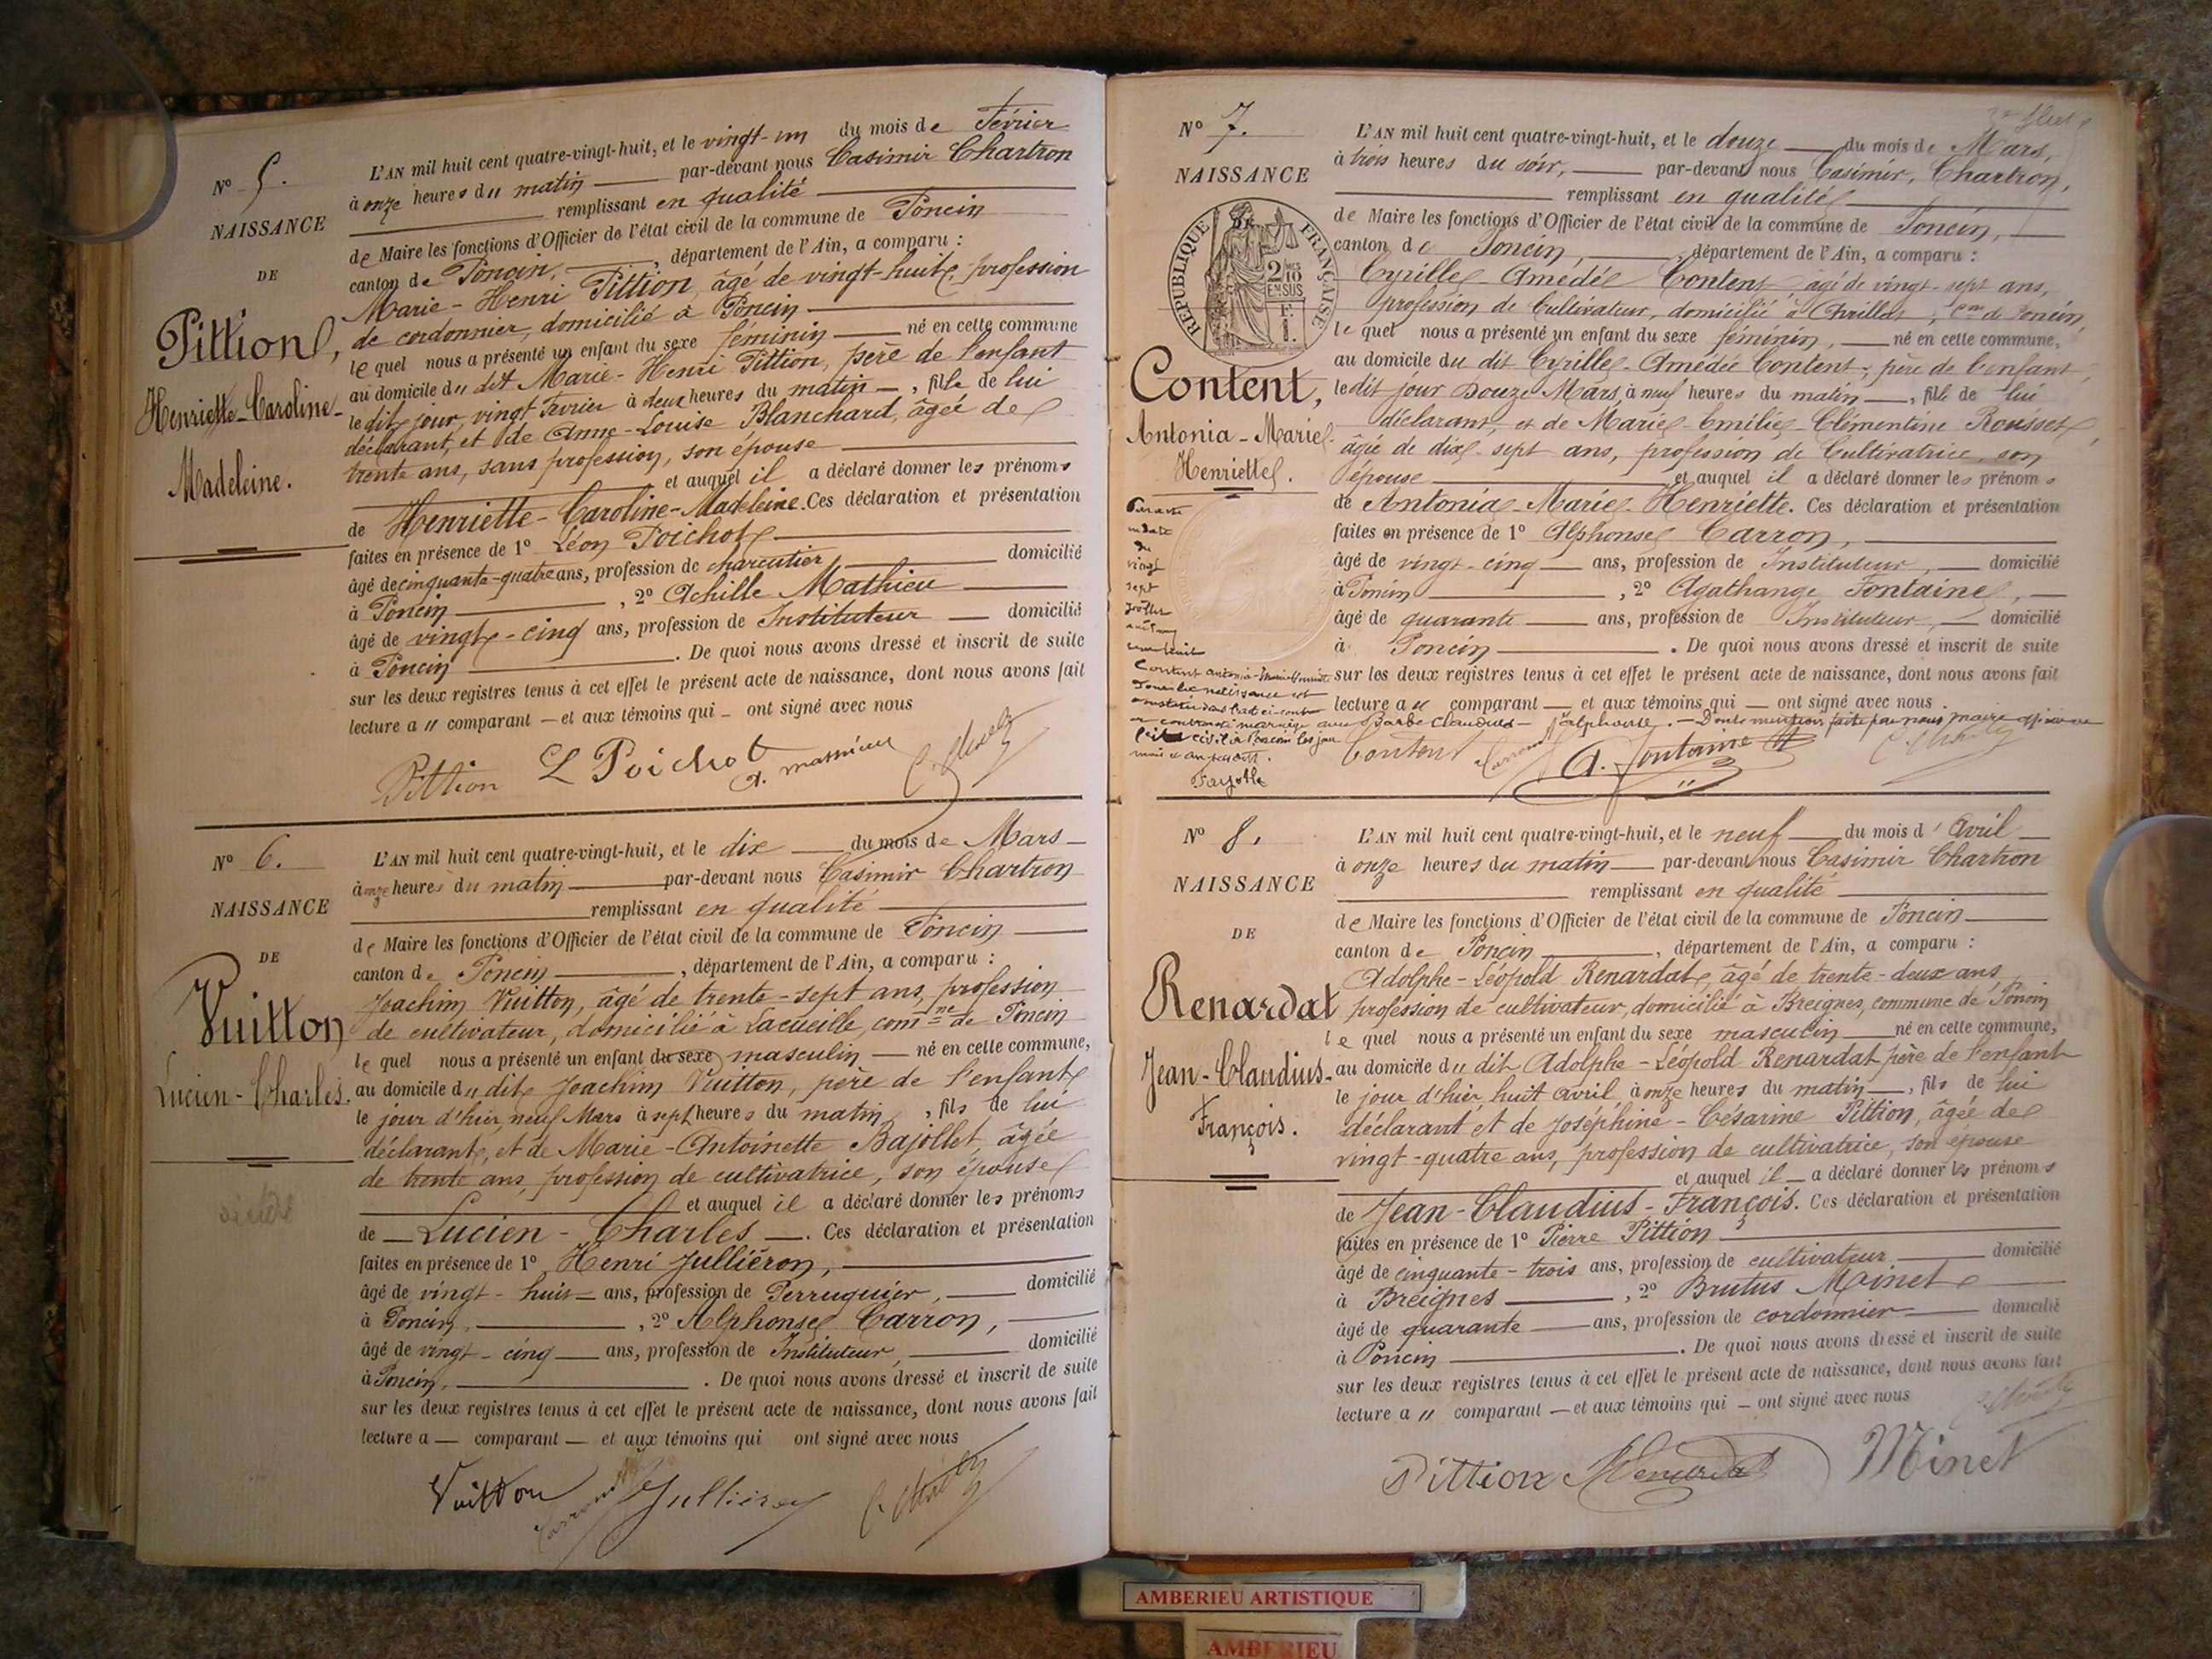 N° 5.
NAISSANCE
DE
Pittion,
Henriette-Caroline-
Madeleine.
L'AN mil huit cent quatre-vingt-huit, et le vingt-un du mois de Février
à onze heures du matin par-devant nous Casimir Chartron
remplissant en qualité
de Maire les fonctions d'Officier de l'état civil de la commune de Poncin
canton de Poncin, , département de l'Ain, a comparu :
Marie-Henri Pittion, âgé de vingt-huit, profession
de cordonnier, domicilié à Poncin
lequel nous a présenté un enfant du sexe féminin né en cette commune
au domicile du dit Marie-Henri Pittion, père de l'enfant
le dit jour, vingt Février à deux heures du matin, fille de lui
déclarant, et de Anne-Louise Blanchard, âgée de
trente ans, sans profession, son épouse
et auquel il a déclaré donner les prénoms
de Henriette-Caroline-Madeleine. Ces déclaration et présentation
faites en présence de 1° Léon Poichot
âgé de cinquante-quatre ans, profession de charcutier, domicilié
à Poncin , 2° Achille Mathieu
âgé de vingt-cinq ans, profession de Instituteur domicilié
à Poncin . De quoi nous avons dressé et inscrit de suite
sur les deux registres tenus à cet effet le présent acte de naissance, dont nous avons fait
lecture a u comparant et aux témoins qui ont signé avec nous
Pittion L Poichot A. Mathieu
N° 6.
NAISSANCE
DE
Vuitton
Lucien-Charles.
L'AN mil huit cent quatre-vingt-huit, et le dix du mois de Mars
à onze heures du matin par-devant nous Casimir Chartron
remplissant en qualité
de Maire les fonctions d'Officier de l'état civil de la commune de Poncin
canton de Poncin , département de l'Ain, a comparu :
Joachim Vuitton, âgé de trente-sept ans, profession
de cultivateur, domicilié à Lacueille, com^ne de Poncin
lequel nous a présenté un enfant du sexe masculin né en cette commune,
au domicile du dit Joachim Vuitton, père de l'enfant
le jour d'hier, neuf Mars à sept heures du matin, fils de lui
déclarant, et de Marie-Antoinette Bajollet, âgée
de trente ans, profession de cultivatrice, son épouse
et auquel il a déclaré donner les prénoms
de Lucien-Charles. Ces déclaration et présentation
faites en présence de 1° Henri Julliéron,
âgé de vingt-huit ans, profession de Perruquier, domicilié
à Poncin, , 2° Alphonse Carron,
âgé de vingt-cinq ans, profession de Instituteur, domicilié
à Poncin, . De quoi nous avons dressé et inscrit de suite
sur les deux registres tenus à cet effet le présent acte de naissance, dont nous avons fait
lecture a comparant et aux témoins qui ont signé avec nous
Vuitton Carron Julliéron
N° 7.
NAISSANCE
RÉPUBLIQUE FRANÇAISE
2/10 EN SUS
Content,
Antonia-Marie-
Henriette.
L'AN mil huit cent quatre-vingt-huit, et le douze du mois de Mars,
à trois heures du soir, par-devant nous Casimir, Chartron,
remplissant en qualité
de Maire les fonctions d'Officier de l'état civil de la commune de Poncin,
canton de Poncin, , département de l'Ain, a comparu :
Cyrille-Amédée Content, âgé de vingt-sept ans,
profession de Cultivateur, domicilié à Avrillat, c^ne de Poncin,
lequel nous a présenté un enfant du sexe féminin, né en cette commune,
au domicile du dit Cyrille-Amédée Content, père de l'enfant,
le dit jour Douze Mars, à neuf heures du matin, fille de lui
déclarant, et de Marie-Emélie-Clémentine Rousset,
âgée de dix-sept ans, profession de Cultivatrice, son
épouse et auquel il a déclaré donner les prénoms
de Antonia-Marie-Henriette. Ces déclaration et présentation
faites en présence de 1° Alphonse Carron,
âgé de vingt-cinq ans, profession de Instituteur, domicilié
à Poncin , 2° Agathange Fontaine,
âgé de quarante ans, profession de Instituteur, domicilié
à Poncin . De quoi nous avons dressé et inscrit de suite
sur les deux registres tenus à cet effet le présent acte de naissance, dont nous avons fait
lecture a u comparant et aux témoins qui ont signé avec nous.
du
vingt
sept
Content Antonia-Marie-Henriette
avec Barbe Claudius alphonse. Dont mention faite par nous maire
Fayolle
Content Carron A. Fontaine
N° 8.
NAISSANCE
DE
Renardat
Jean-Claudius-
François.
L'AN mil huit cent quatre-vingt-huit, et le neuf du mois d'Avril
à onze heures du matin par-devant nous Casimir Chartron
remplissant en qualité
de Maire les fonctions d'Officier de l'état civil de la commune de Poncin
canton de Poncin , département de l'Ain, a comparu :
Adolphe-Léopold Renardat, âgé de trente-deux ans,
profession de cultivateur, domicilié à Breignes, commune de Poncin
lequel nous a présenté un enfant du sexe masculin né en cette commune,
au domicile du dit Adolphe-Léopold Renardat père de l'enfant
le jour d'hier huit Avril, à onze heures du matin, fils de lui
déclarant et de Joséphine-Césarine Pittion, âgée de
vingt-quatre ans, profession de cultivatrice, son épouse
et auquel il a déclaré donner les prénoms
de Jean-Claudius-François. Ces déclaration et présentation
faites en présence de 1° Pierre Pittion
âgé de cinquante-trois ans, profession de cultivateur domicilié
à Breignes , 2° Brutus Minet
âgé de quarante ans, profession de cordonnier domicilié
à Poncin . De quoi nous avons dressé et inscrit de suite
sur les deux registres tenus à cet effet le présent acte de naissance, dont nous avons fait
lecture a u comparant et aux témoins qui ont signé avec nous
Pittion Renardat Minet
AMBERIEU ARTISTIQUE
AMBERIEU